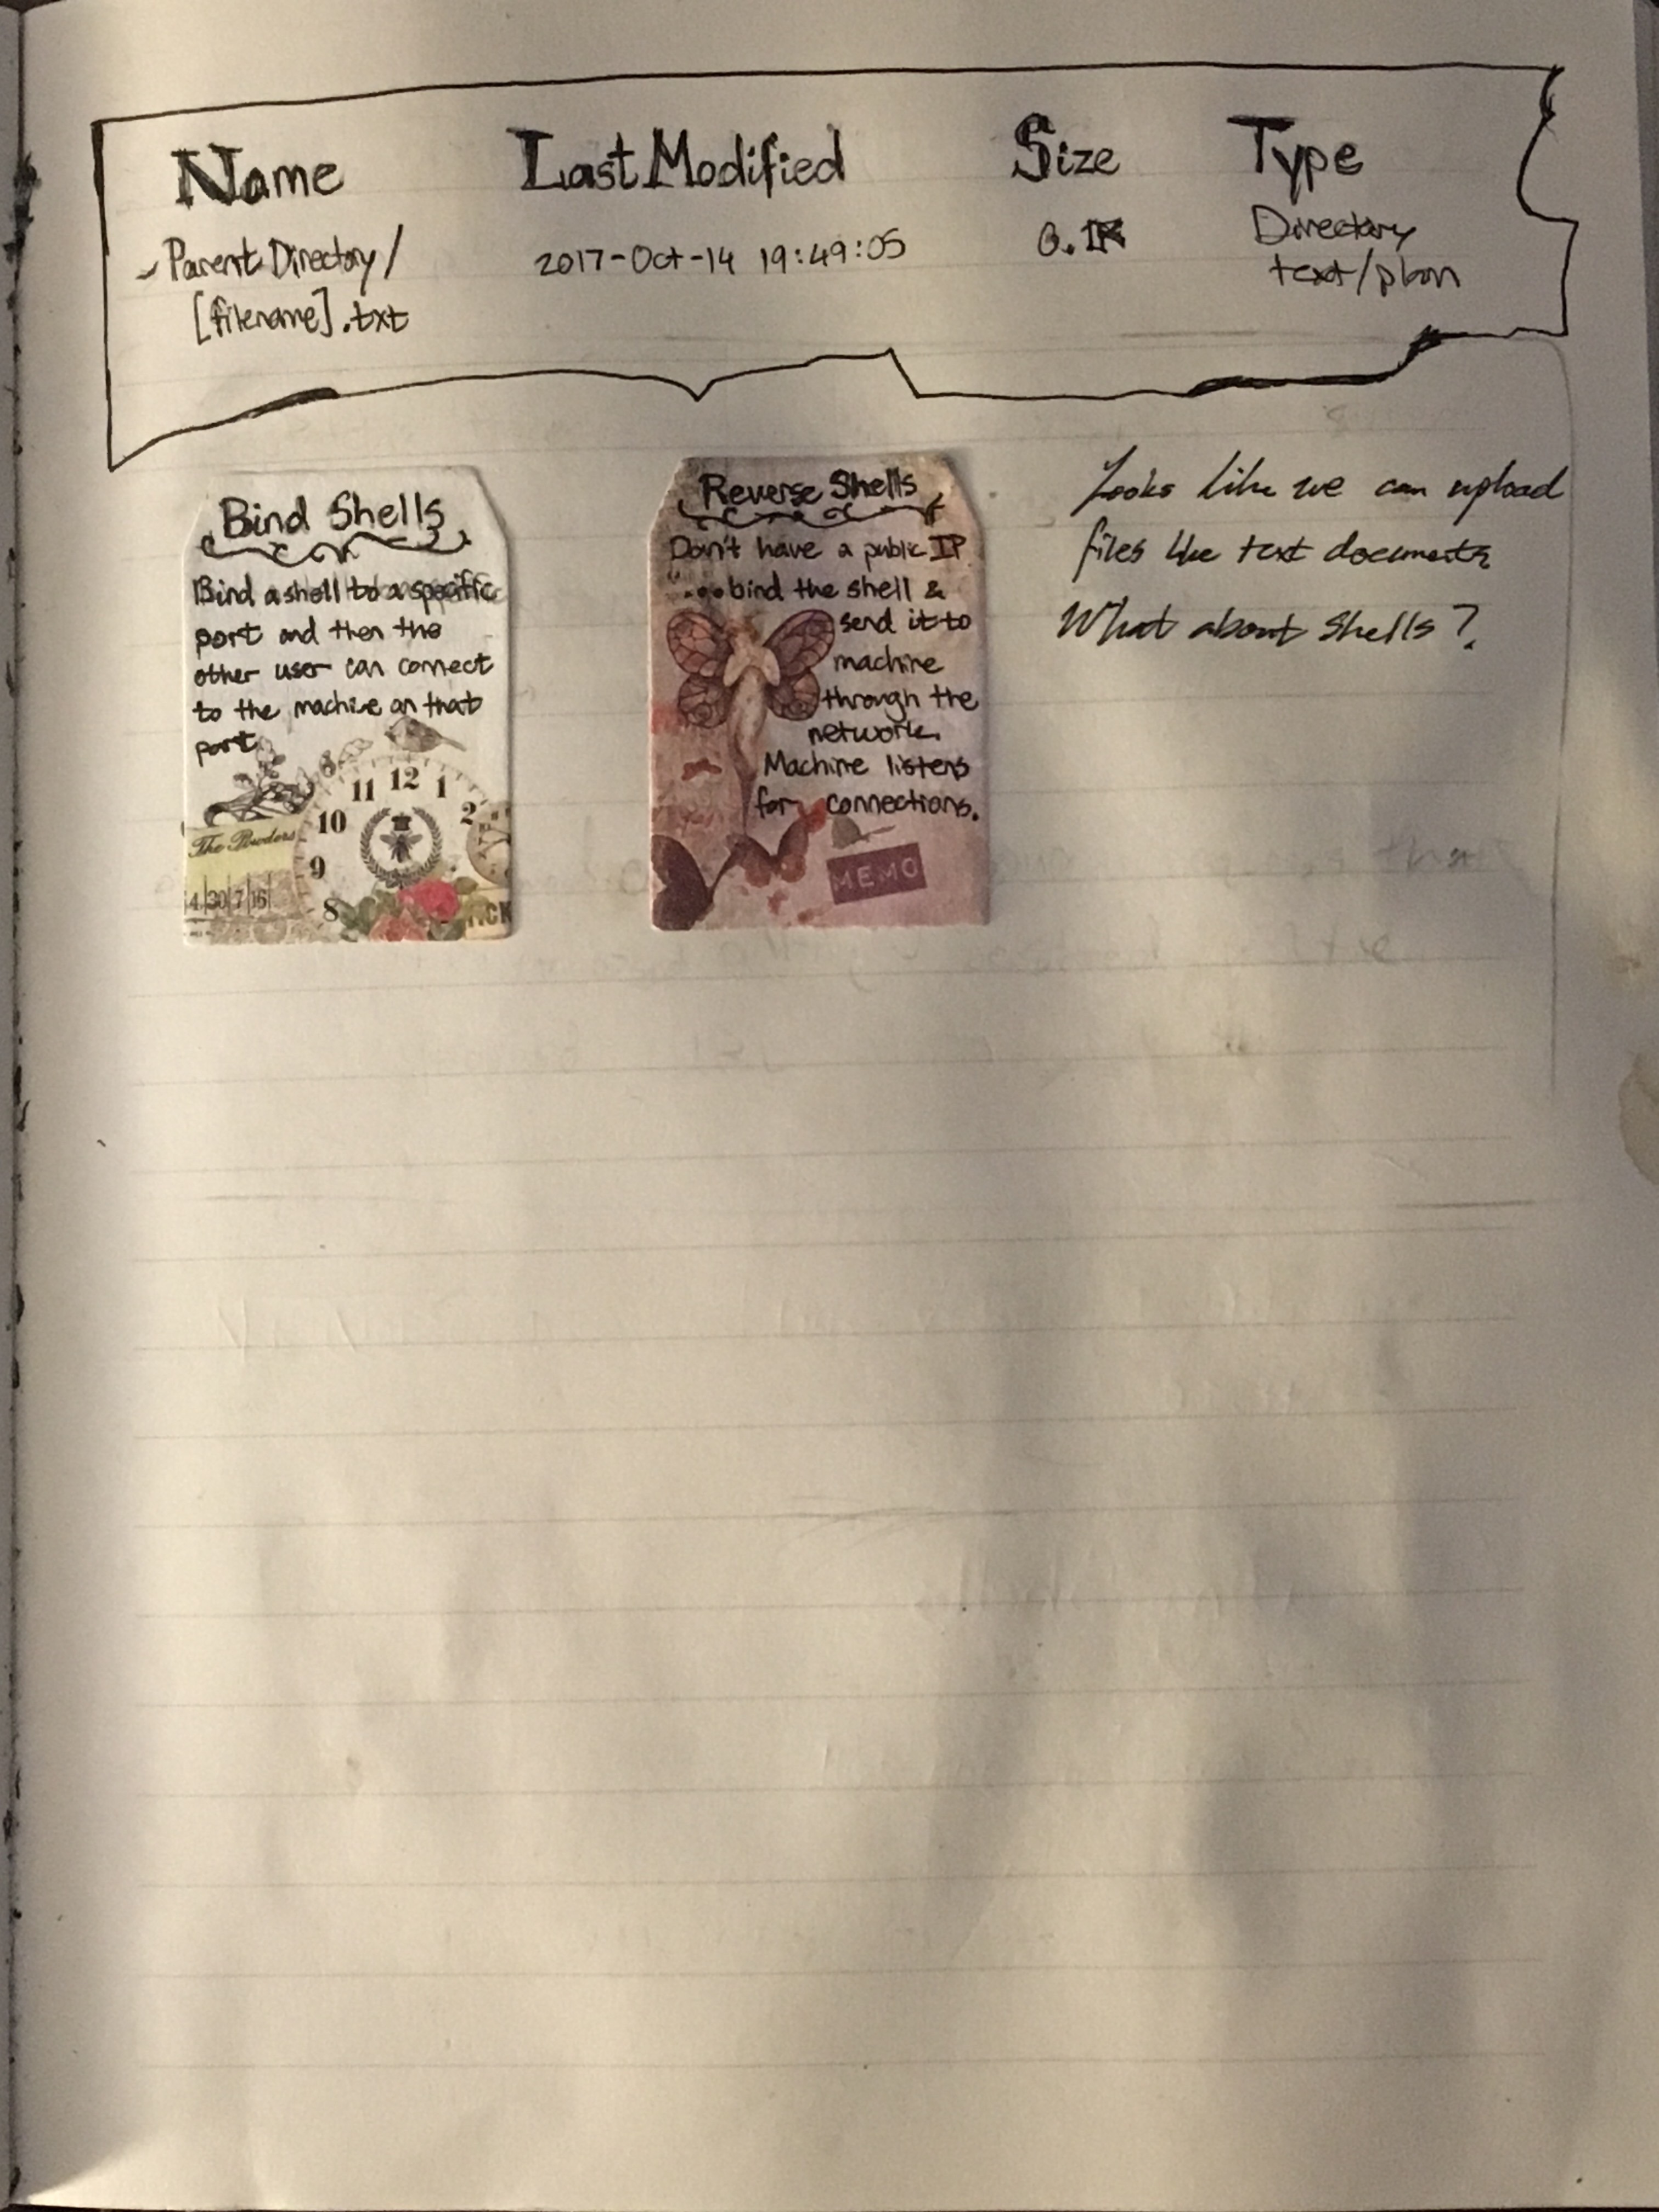 Name Last Modified Size Type
Parent Directory/ 2017-Oct-14 19:49:05 0.1K Directory
[filename].txt text/plain
Bind Shells
Bind a shell to a specific
port and then the
other user can connect
to the machine on that
port.
11 12 1
10 2
9
8
4 30 7 16
Reverse Shells
Don't have a public IP
...bind the shell &
send it to
machine
through the
network.
Machine listens
for connections.
MEMO
Looks like we can upload
files like text documents
What about shells?